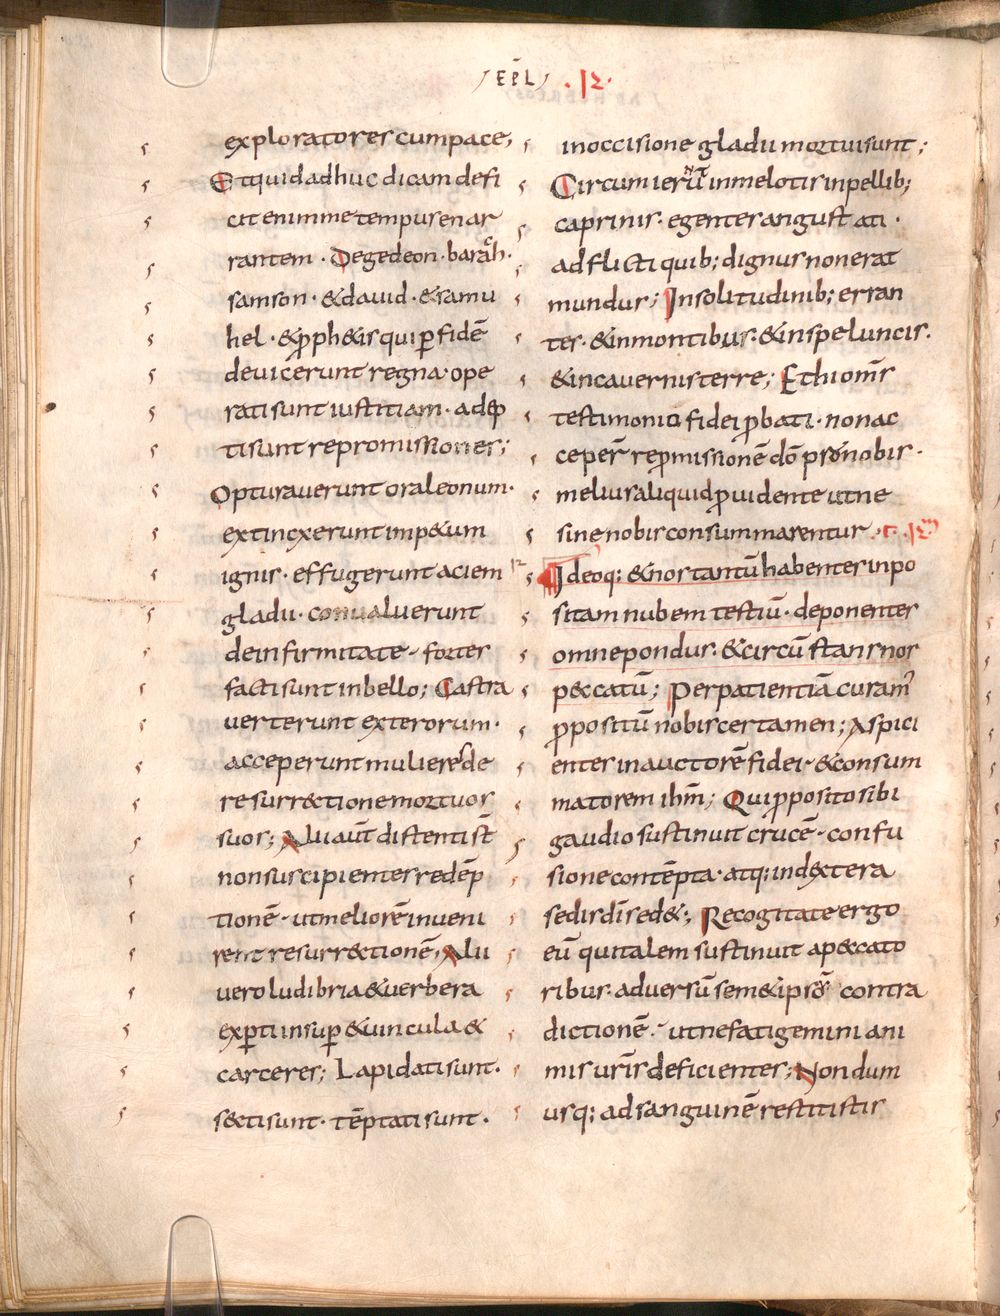 EP̄L · 12 ·
exploratores cum pace;
Et quid adhuc dicam defi
cit enim me tempus enar
rantem · De gedeon · barach ·
samson · & david · & samu
hel · & ꝓph&is qui ꝑ fidē
devicerunt regna · ope
rati sunt iustitiam · adep
ti sunt repromissiones;
Opturaverunt ora leonum ·
extincxerunt imp&um
ignis · effugerunt aciem
gladii · convaluerunt
de infirmitate · fortes
facti sunt in bello; Castra
verterunt exterorum ·
acceperunt mulieres de
resurr&tione mortuos
suos; Alii aūt distenti st̄
non suscipientes redēp
tionē · ut meliorē inveni
rent resurr&tionē; Alii
vero ludibria & verbera
exꝑti insuꝑ & vincula &
carceres; Lapidati sunt ·
s&ti sunt · tēptati sunt ·
in occisione gladii mortui sunt;
Circumierūt in melotis in pellib;
caprinis · egentes angustiati ·
adflicti quib; dignus non erat
mundus; In solitudinib; erran
tes · & in montibus · & in speluncis ·
& in cavernis terre; Et hi om̄s
testimonio fidei ꝓbati · non ac
ceper̄ repmissionē dō pro nobis ·
melius aliquid ꝓvidente ut ne
sine nobis consummarentur · c · 12
12 Ideoq; & nos tantū habentes inpo
sitam nubem testiū · deponentes
omne pondus · & circūstans nos
peccatū; Per patientiā curam'
ꝓpositū nobis certamen; Aspici
entes in auctorē fidei · & consum
matorem ihm̄; Qui ꝓposito sibi
gaudio sustinuit crucē · confu
sione contēpta · atq; in dextera
sedis dī sed&; Recogitate ergo
eū qui talem sustinuit a peccato
ribus · adversū sem&ipsos contra
dictionē · ut ne fatigemini ani
mis ur̄is deficientes; Nondum
usq; ad sanguinē restitistis